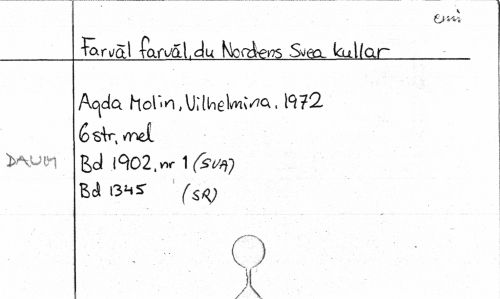 emi
Farväl farväl, du Nordens Svea kullar
Agda Molin, Vilhelmina, 1972
6 str, mel
DAUM Bd 1902, nr 1 (SVA)
Bd 1345 (SR)